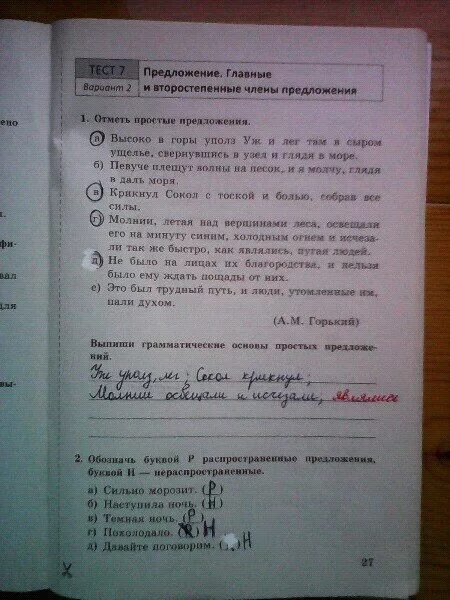 ТЕСТ 7
Вариант 2
Предложение. Главные
и второстепенные члены предложения
1. Отметь простые предложения.
а) Высоко в горы уполз Уж и лег там в сыром
ущелье, свернувшись в узел и глядя в море.
б) Певуче плещут волны на песок, и я молчу, глядя
в даль моря.
в) Крикнул Сокол с тоской и болью, собрав все
силы.
г) Молнии, летая над вершинами леса, освещали
его на минуту синим, холодным огнем и исчеза-
ли так же быстро, как являлись, пугая людей.
д) Не было на лицах их благородства, и нельзя
было ему ждать пощады от них.
е) Это был трудный путь, и люди, утомленные им,
пали духом.
(А.М. Горький)
Выпиши грамматические основы простых предложе-
ний.
Уж уполз, лег; Сокол крикнул;
Молнии освещали и исчезали, являлись
2. Обозначь буквой Р распространенные предложения,
буквой Н — нераспространенные.
а) Сильно морозит. (Р)
б) Наступила ночь. (Н)
в) Темная ночь. (Р)
г) Похолодало. ( ) Н
д) Давайте поговорим. ( ) Н
27
ено
и.
фи-
вал
для
вы-